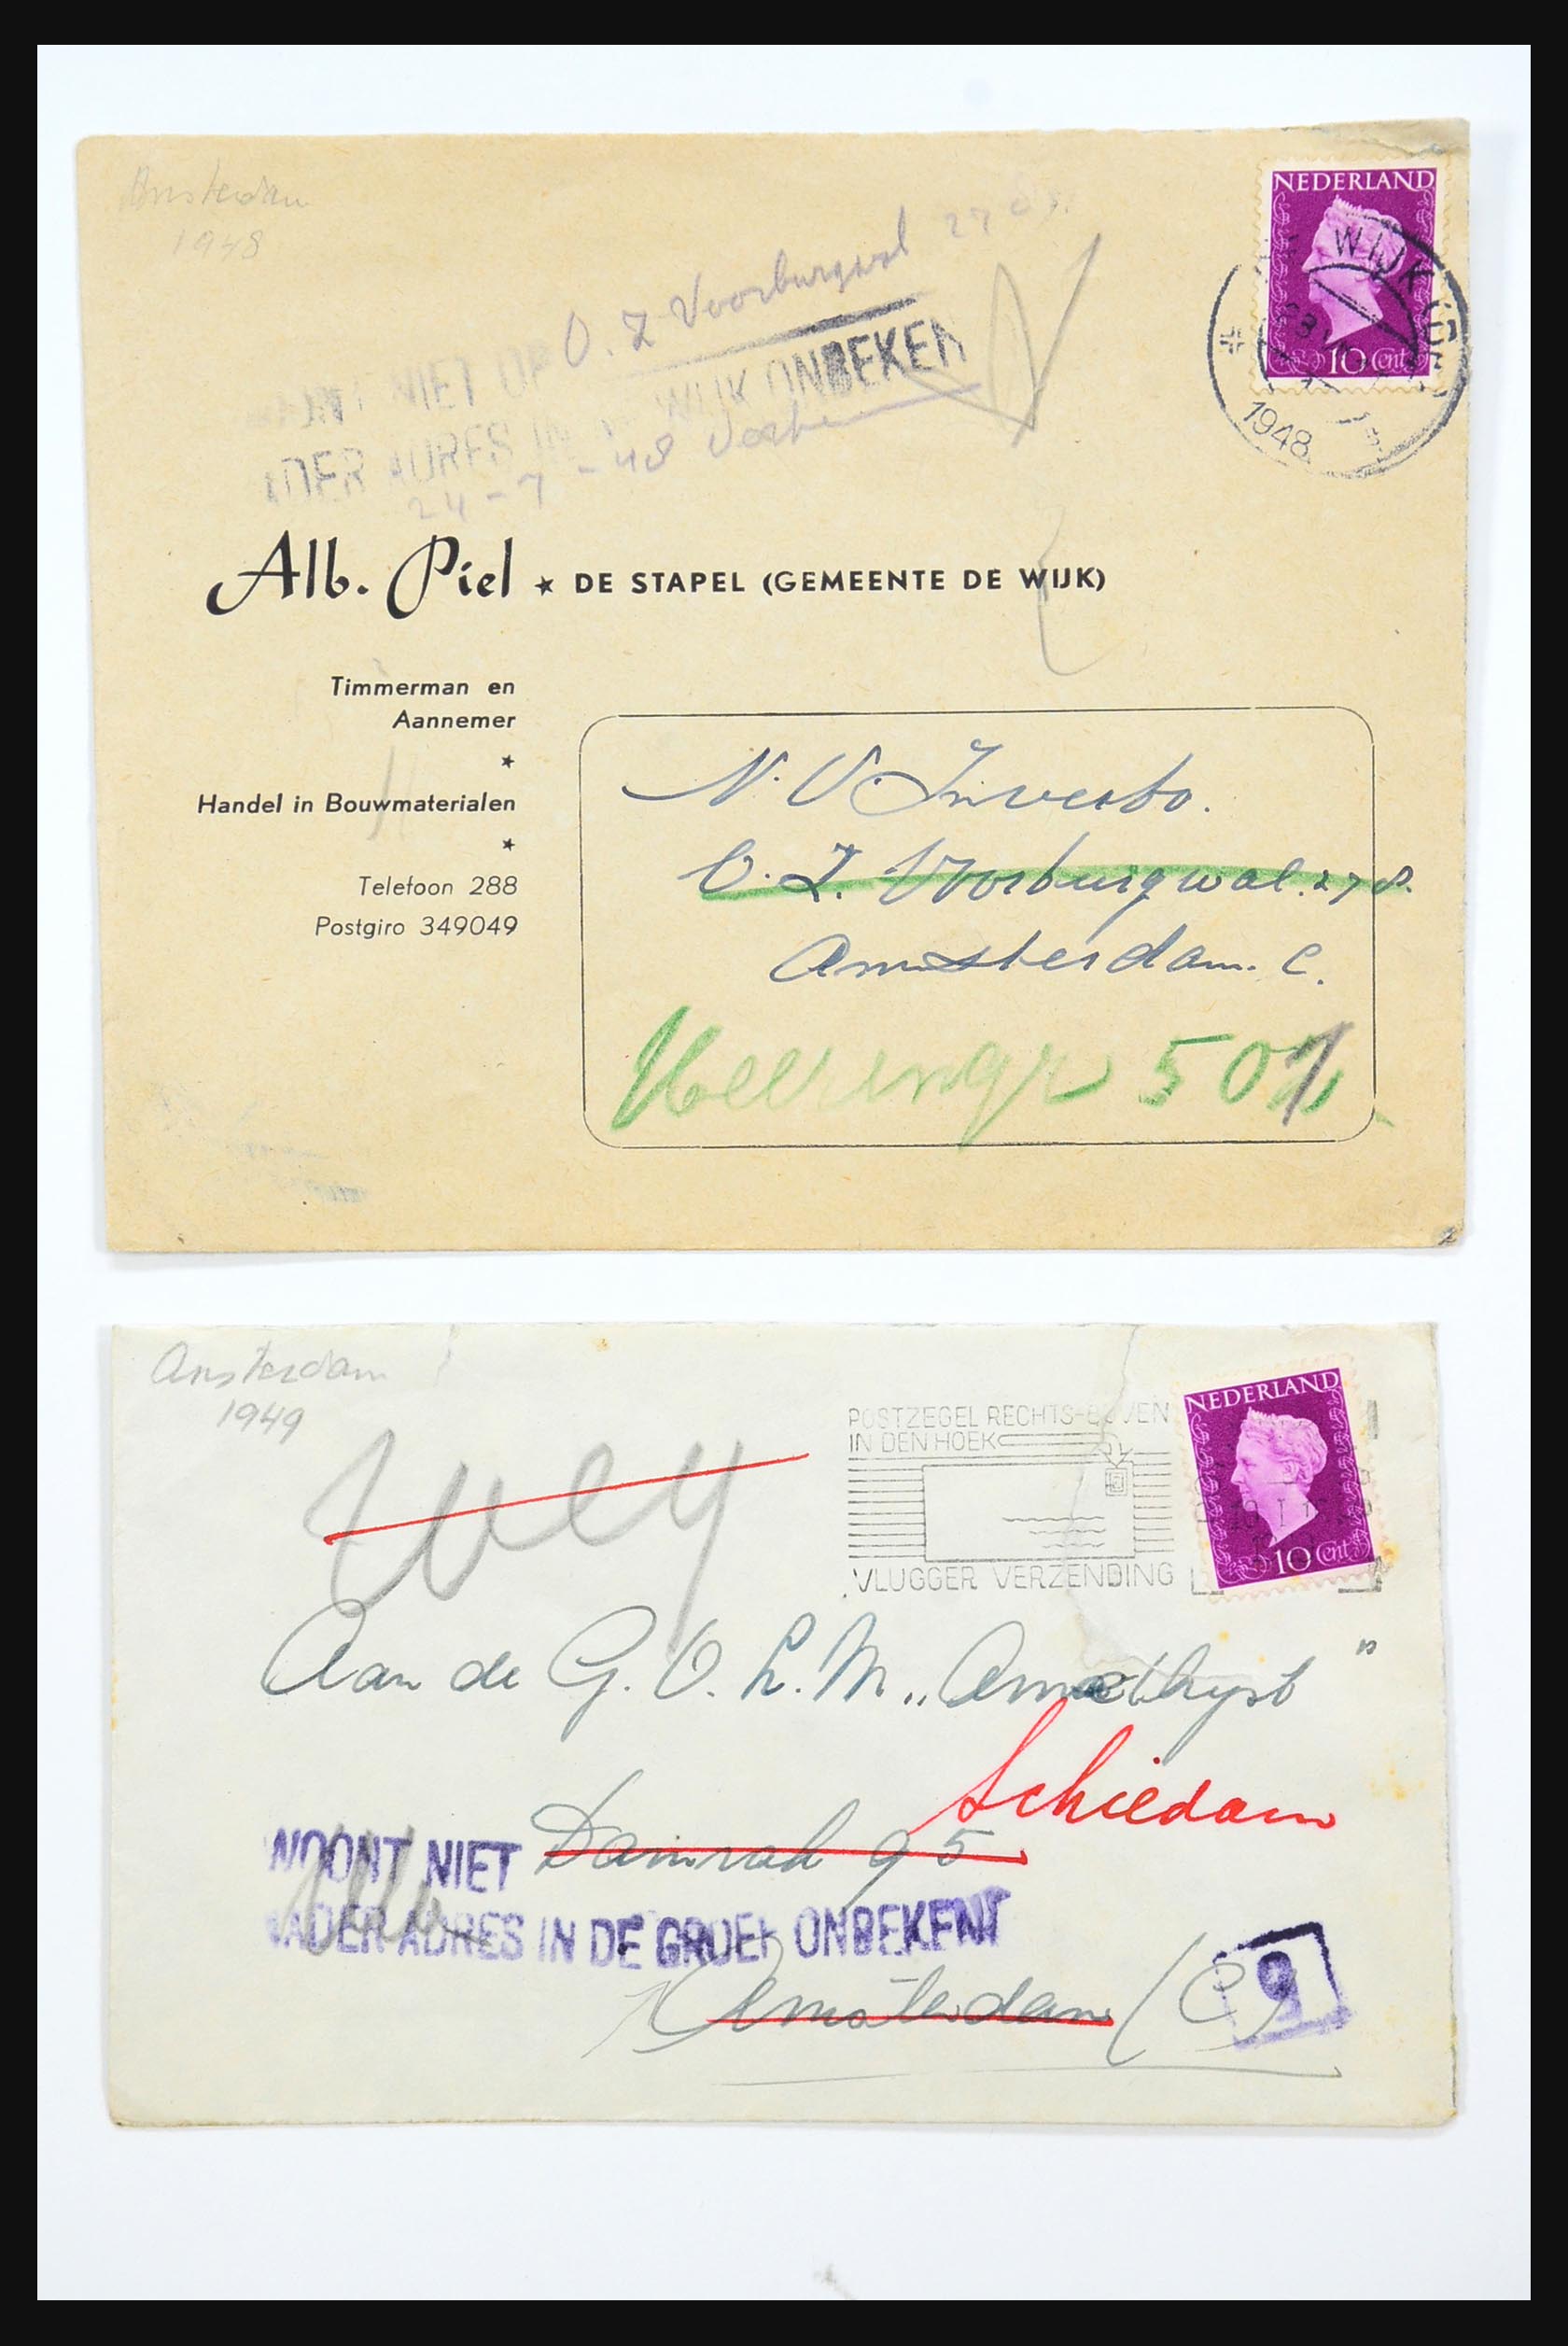 Amsterdam
1948
O. Z Voorburgwal 27
NIET OP
WIJK ONBEKEN
ADER ADRES IN
24-7-48
NEDERLAND
10 Cent
WIJK
1948
Alb. Piel ★ DE STAPEL (GEMEENTE DE WIJK)
Timmerman en
Aannemer
★
Handel in Bouwmaterialen
★
Telefoon 288
Postgiro 349049
N.V. Investo.
O.Z. Voorburgwal. 278.
Amsterdam. C.
Heerengr 501
Amsterdam
1949
POSTZEGEL RECHTS-BOVEN
IN DEN HOEK
VLUGGER VERZENDING
NEDERLAND
10 Cent
Aan de G.V.L.M. „Amethyst"
Schiedam
WOONT NIET Damrak 95
NADER ADRES IN DE GROEP ONBEKEND
Amsterdam (C)
9